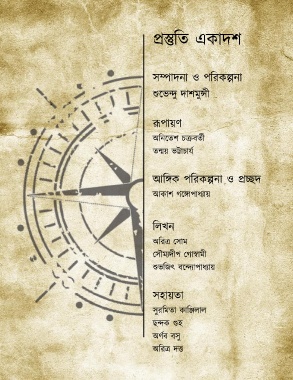 প্রস্তুতি একাদশ
সম্পাদনা ও পরিকল্পনা
শুভেন্দু দাশমুন্সী
রূপায়ণ
অনিতেশ চক্রবর্তী
তন্ময় ভট্টাচার্য
আঙ্গিক পরিকল্পনা ও প্রচ্ছদ
আকাশ গঙ্গোপাধ্যায়
লিখন
অরিত্র সোম
সৌম্যদীপ গোস্বামী
শুভজিৎ বন্দ্যোপাধ্যায়
সহায়তা
সুরমিতা কাঞ্জিলাল
ছন্দক গুহ
অর্ণব বসু
অরিত্র দত্ত